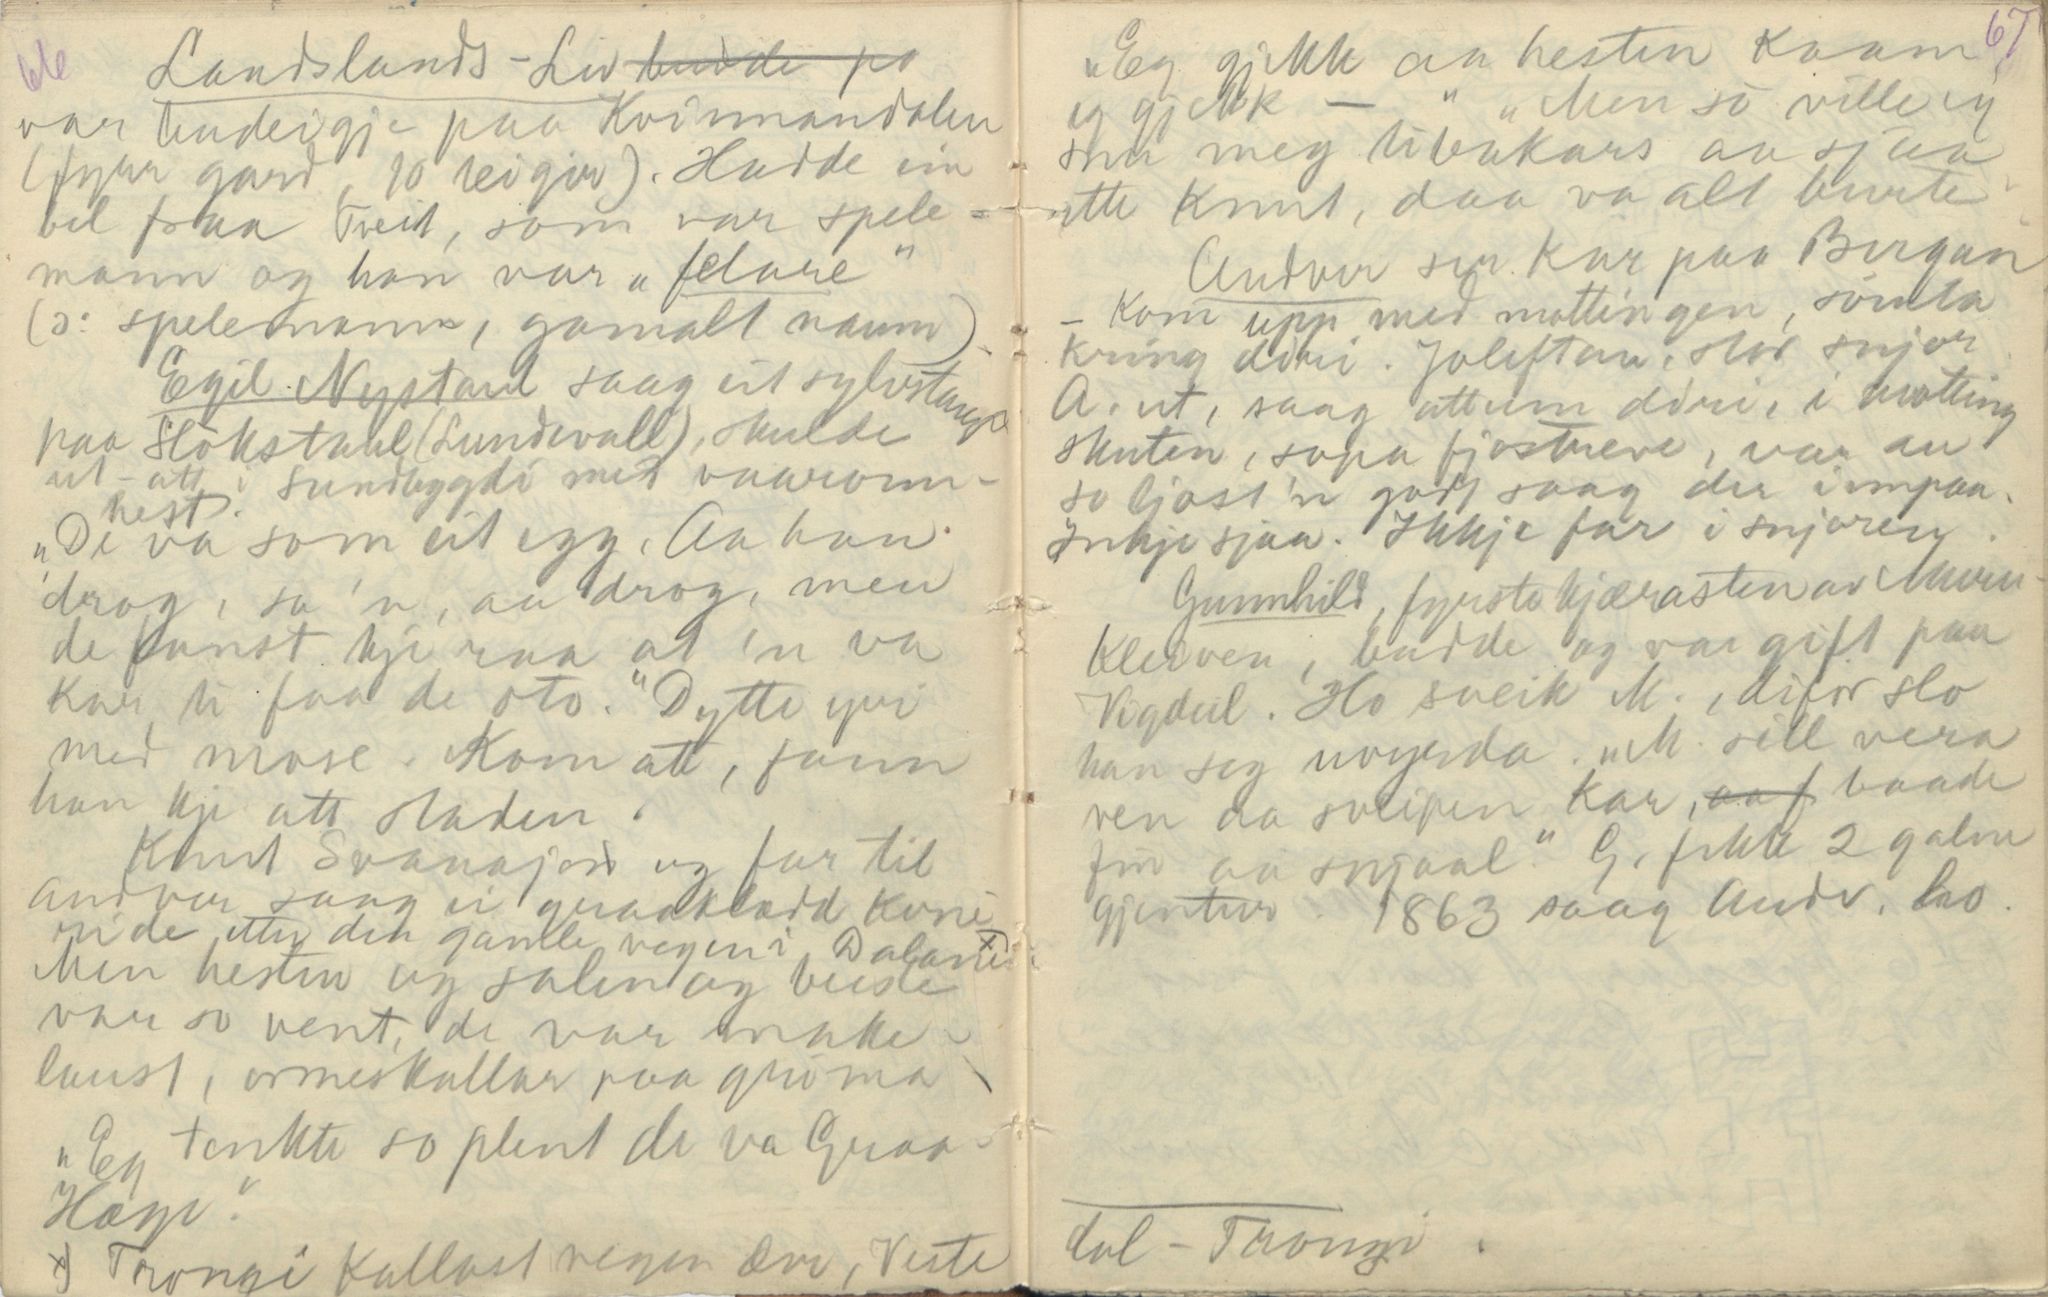 66
Landslands-Liv budde po
var budeigje paa Kvinnandalen
(fyrr gard, 10 leigor). Hadde ein
bel fraa Tveit, som var spele-
mann og han var „felare"
(ɔ: spelemann, gamalt namn)
Egil Nystaul saag eit sylvstaup
paa Slökstaul (Lundevall), skulde
ut-att i Sundbygdi med vaaronn-
hest.
„De va som eit egg. Aa han
drog, sa 'n, aa drog, men
de fanst kje raa at 'n va
kar ti faa de sto." Dytte yvi
med mose. Kom att, fann
han kje att staden.
Knut Svanajord og far til
Andver saag ei graaklædd kone
ride etter den gamle vegen i Dalane x)
Men hesten og salen og beiste
var so vent, de var make-
laust, ormeskallar paa grima
„Eg tenkte so plent de va Graa-
Hæge".
x) Trongi kallast vegen øve, Veste
67
„Eg gjekk aa hesten kaam,
eg gjekk — " „Men so ville eg
snu meg tibakars aa sjaa
ette Knut, daa va alt burte
Andver ser kar paa Bergan
– kom upp med mottingen, sömla
kring diri. Joleftan, stor snjor
A. ut, saag attum diri, i motting
skuten, sopa fjostreve, var au
so ljost 'n godt saag der innpaa.
Inkje sjaa. Ikkje far i snjoren.
Gunnhild, fyrste kjærasten av Mura-
Kleiven, budde og var gift paa
Vigdeil. Ho sveik M., difor slo
han seg uvyrda. „M. sill vera
ven aa sveipen kar, aaf baade
fin aa snjaal". G. fekk 2 galne
gjentur. 1863 saag Andv. ho.
dal – Trongi.